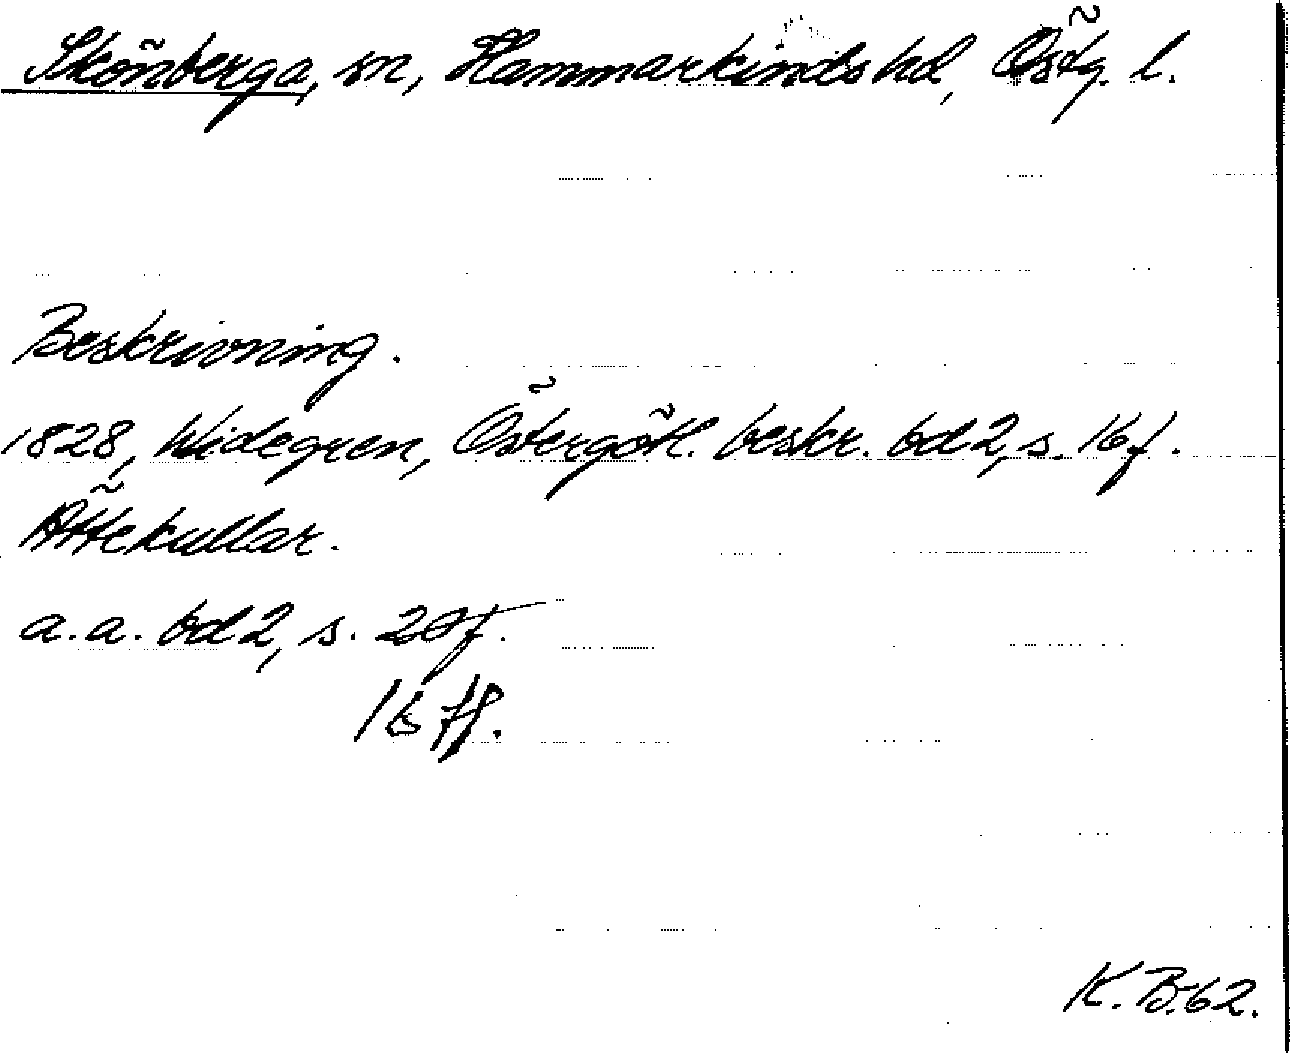 Skönberga, sn, Hammarkinds hd, Östg. l.
Beskrivning.
1828, Widegren, Östergötl. beskr. bd 2, s. 16 f.
Ättekullar.
a. a. bd 2, s. 20 f.
16 ff.
K. B. 62.